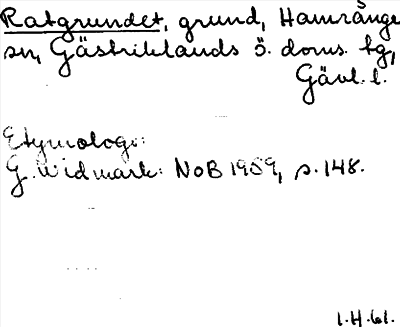 Ratgrundet, grund, Hamrånge
sn, Gästriklands ö. doms. tg,
Gävl. l.
Etymologi:
G. Widmark: NoB 1959, s. 148.
1.H.61.